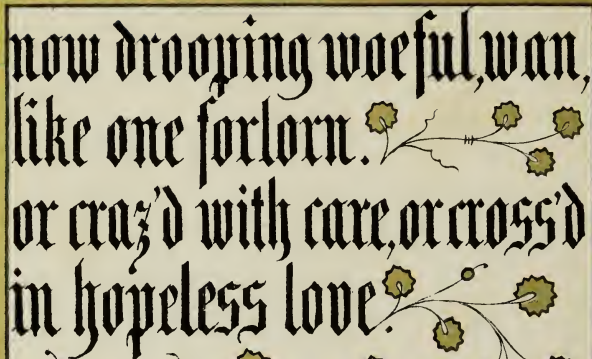 now drooping woeful,wan,
like one forlorn.
or craz'd with care,or cross'd
in hopeless love.